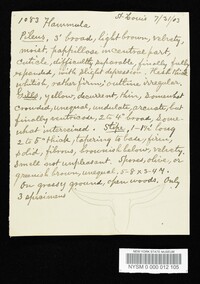 1083 Flammula St Louis 7/2/03
Pileus, 3" broad, light brown, velvety,
moist, papillose in central part,
cuticle, difficultly separable, finally fully
expanded, with slight depression. Flesh thick
rather firm; outline irregular.
Gills, yellow, decurrent, thin, somewhat
crowded, unequal, undulate, arcuate, but
finally ventricose, 2 to 4" broad, some-
what interveined. Stipe, 1-1½ long
2 to 5" thick, tapering to base, firm,
solid, fibrous, brownish below, velvety.
Smell not unpleasant. Spores, olive, or
greenish brown, unequal, 5-8 x 3-4
On grassy ground, open woods. Only
3 specimens
NEW YORK STATE MUSEUM
NYSM 0 000 012 105